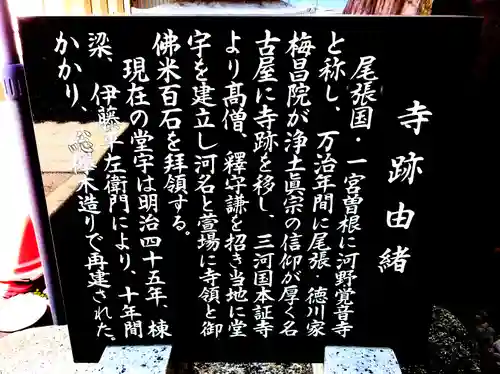 寺跡由緒
尾張国・一宮曽根に河野覚音寺
と称し、万治年間に尾張・徳川家
梅昌院が浄土真宗の信仰が厚く名
古屋に寺跡を移し、三河国本証寺
より髙僧、釋守謙を招き当地に堂
宇を建立し河名と萱場に寺領と御
佛米百石を拝領する。
現在の堂宇は明治四十五年、棟
梁、伊藤平左衛門により、十年間
かかり、総欅木造りで再建された。